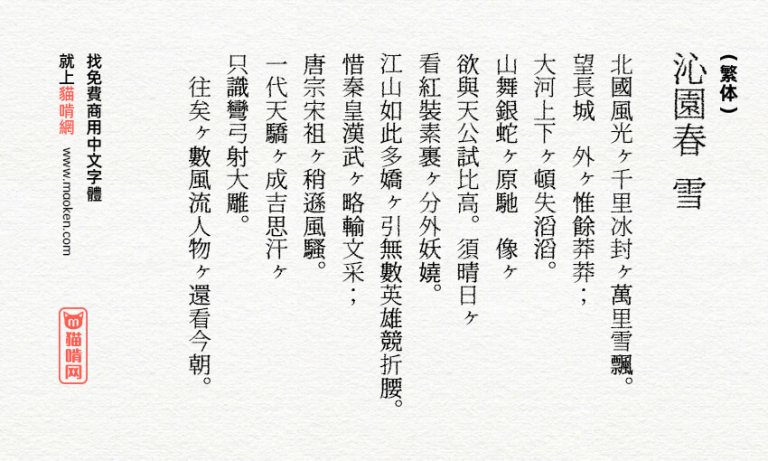 (繁体)
沁園春 雪
北國風光ヶ千里冰封ヶ萬里雪飄。
望長城 外ヶ惟餘莽莽；
大河上下ヶ頓失滔滔。
山舞銀蛇ヶ原馳 像ヶ
欲與天公試比高。須晴日ヶ
看紅裝素裹ヶ分外妖嬈。
江山如此多嬌ヶ引無數英雄競折腰。
惜秦皇漢武ヶ略輸文采；
唐宗宋祖ヶ稍遜風騷。
一代天驕ヶ成吉思汗ヶ
只識彎弓射大雕。
往矣ヶ數風流人物ヶ還看今朝。
找免費商用中文字體
就上貓啃網 www.mooken.com
猫啃网